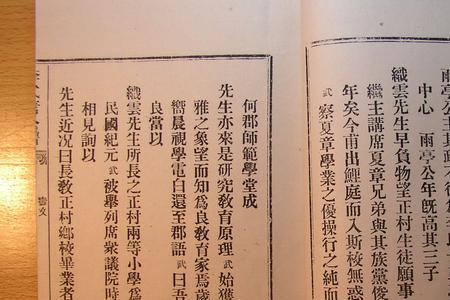 雨亭公其政不
中心　雨亭公年既高其三子
織雲先生早負物望正村生徒願事
繼主講席夏章兄弟與其族黨俊
年矣今甫出鯉庭而入斯校無惑
武 察夏章學業之優操行之純而
何郡師範學堂成
先生亦來是研究教育原理 武 始獲
雅之象望而知爲良教育家焉歲
嚮晨視學電白還至郡語 武 曰吾
良當以
織雲先生所長之正村兩等小學爲
民國紀元 武 被舉列席衆議院時
相見詢以
先生近况曰長教正村鄉校畢業者
藝文